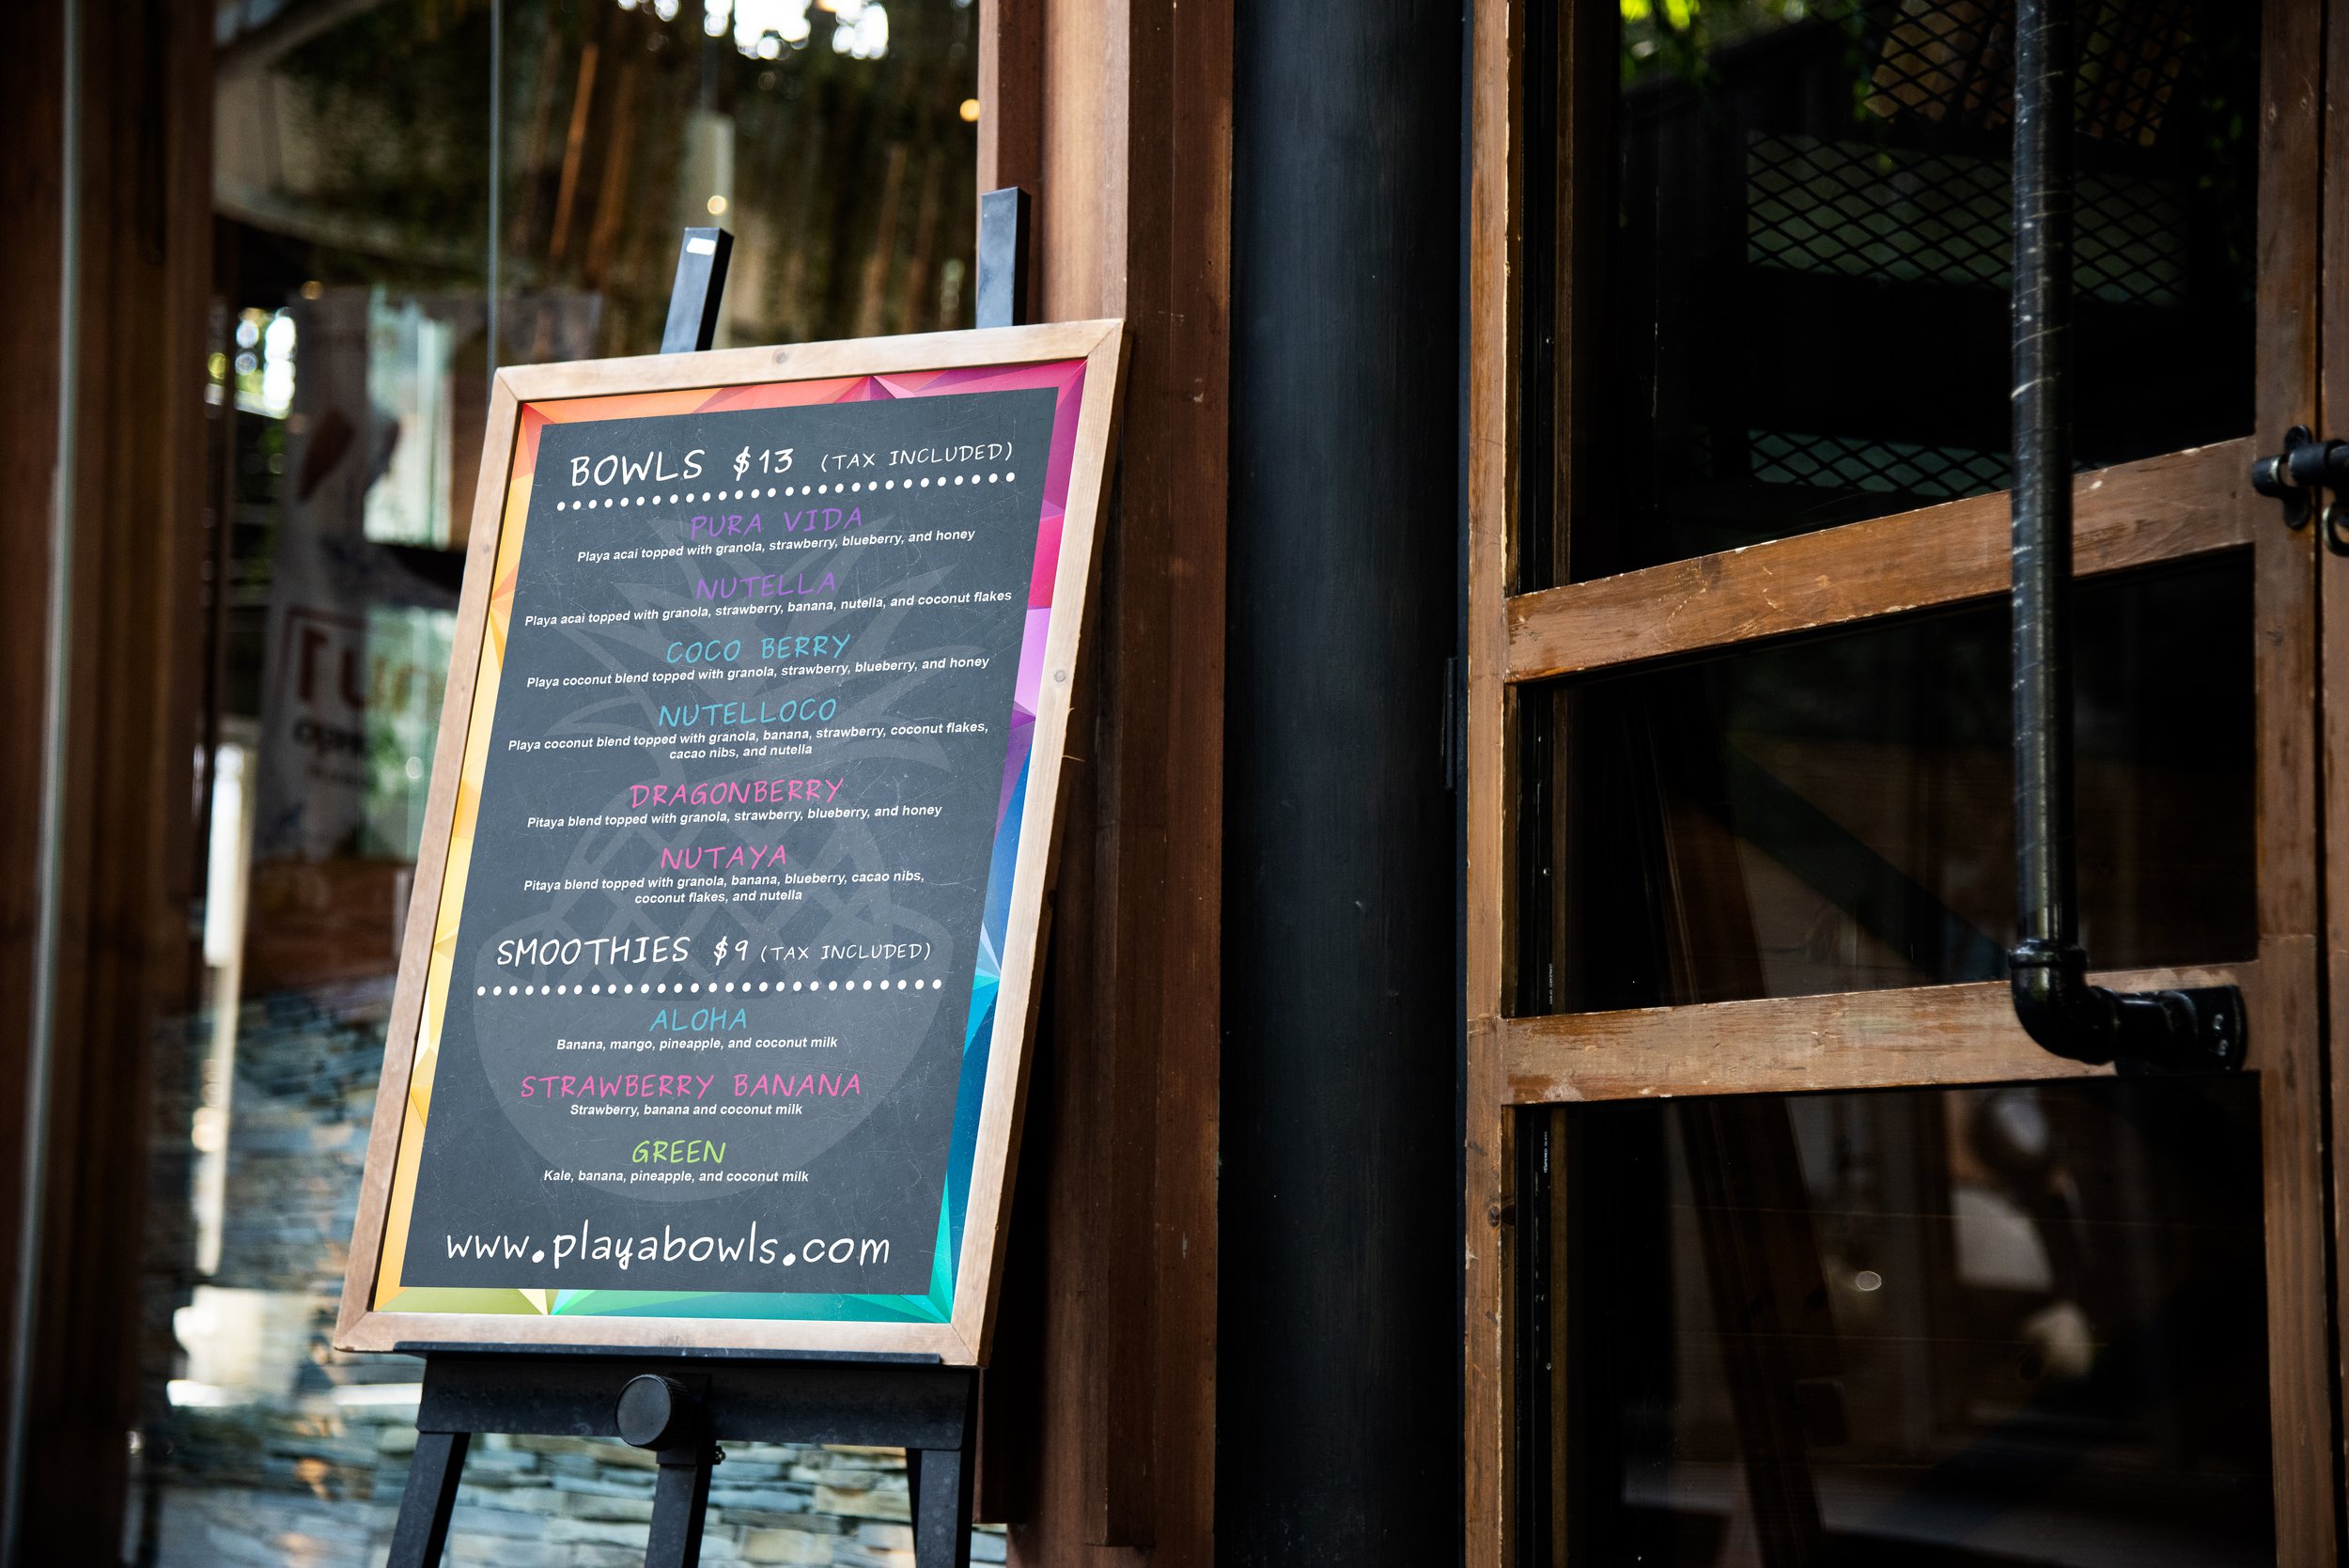 BOWLS $13 (TAX INCLUDED)
PURA VIDA
Playa acai topped with granola, strawberry, blueberry, and honey
NUTELLA
Playa acai topped with granola, strawberry, banana, nutella, and coconut flakes
COCO BERRY
Playa coconut blend topped with granola, strawberry, blueberry, and honey
NUTELLOCO
Playa coconut blend topped with granola, banana, strawberry, coconut flakes,
cacao nibs, and nutella
DRAGONBERRY
Pitaya blend topped with granola, strawberry, blueberry, and honey
NUTAYA
Pitaya blend topped with granola, banana, blueberry, cacao nibs,
coconut flakes, and nutella
SMOOTHIES $9 (TAX INCLUDED)
ALOHA
Banana, mango, pineapple, and coconut milk
STRAWBERRY BANANA
Strawberry, banana and coconut milk
GREEN
Kale, banana, pineapple, and coconut milk
www.playabowls.com